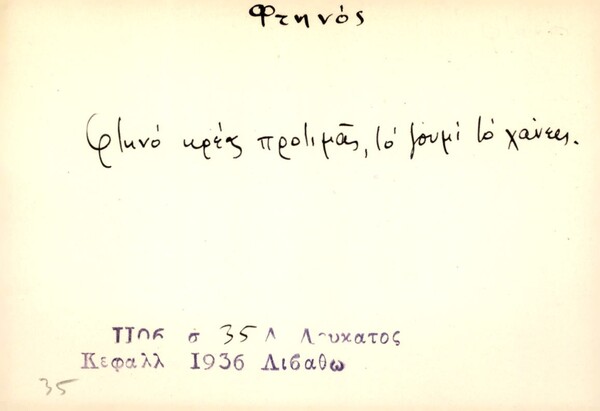 Φτηνός
Φτηνό κρέας προτιμᾶς, τό ζουμί τό χάνεις.
σ 35 Δ Λουκατος
Κεφαλλ 1936 Λιβαθω
35